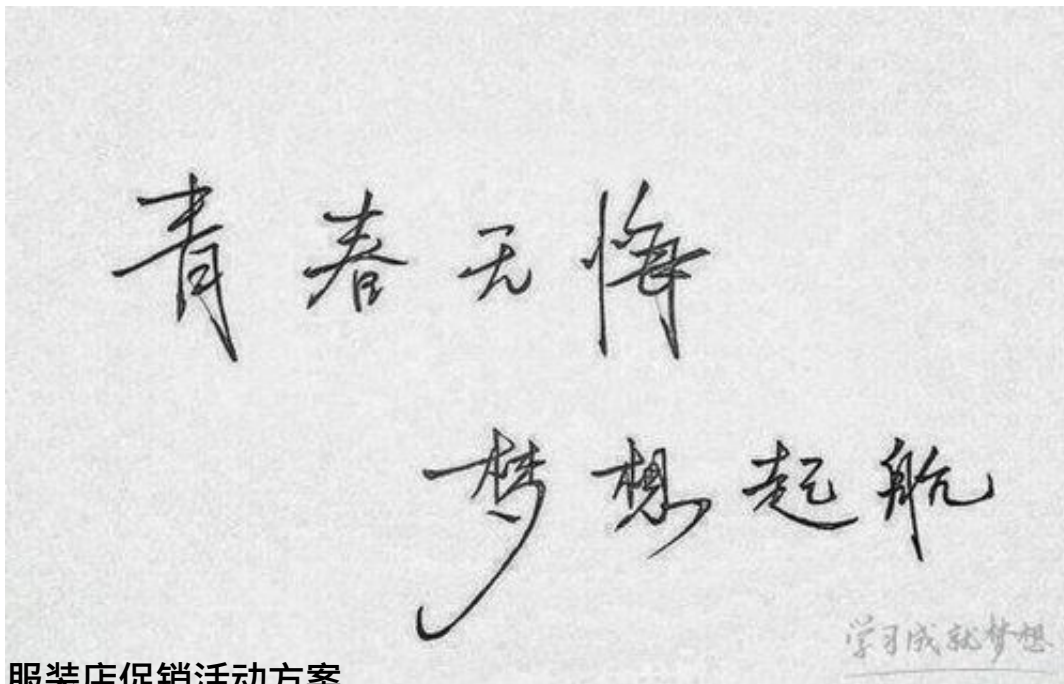 青春无悔
梦想起航
学习成就梦想
服装店促销活动方案